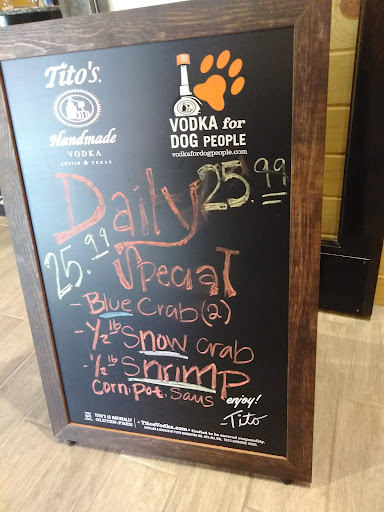 Tito's®
Handmade
VODKA
AUSTIN ★ TEXAS
VODKA for
DOG PEOPLE
vodkafordogpeople.com
Daily 25.99
25.99
Special
- Blue Crab (2)
- ½ lb Snow Crab
- ½ lb Shrimp
Corn. Pot. Saus
enjoy!
-Tito
TITO'S IS NATURALLY
GLUTEN-FREE
TitosVodka.com • Crafted to be savored responsibly.